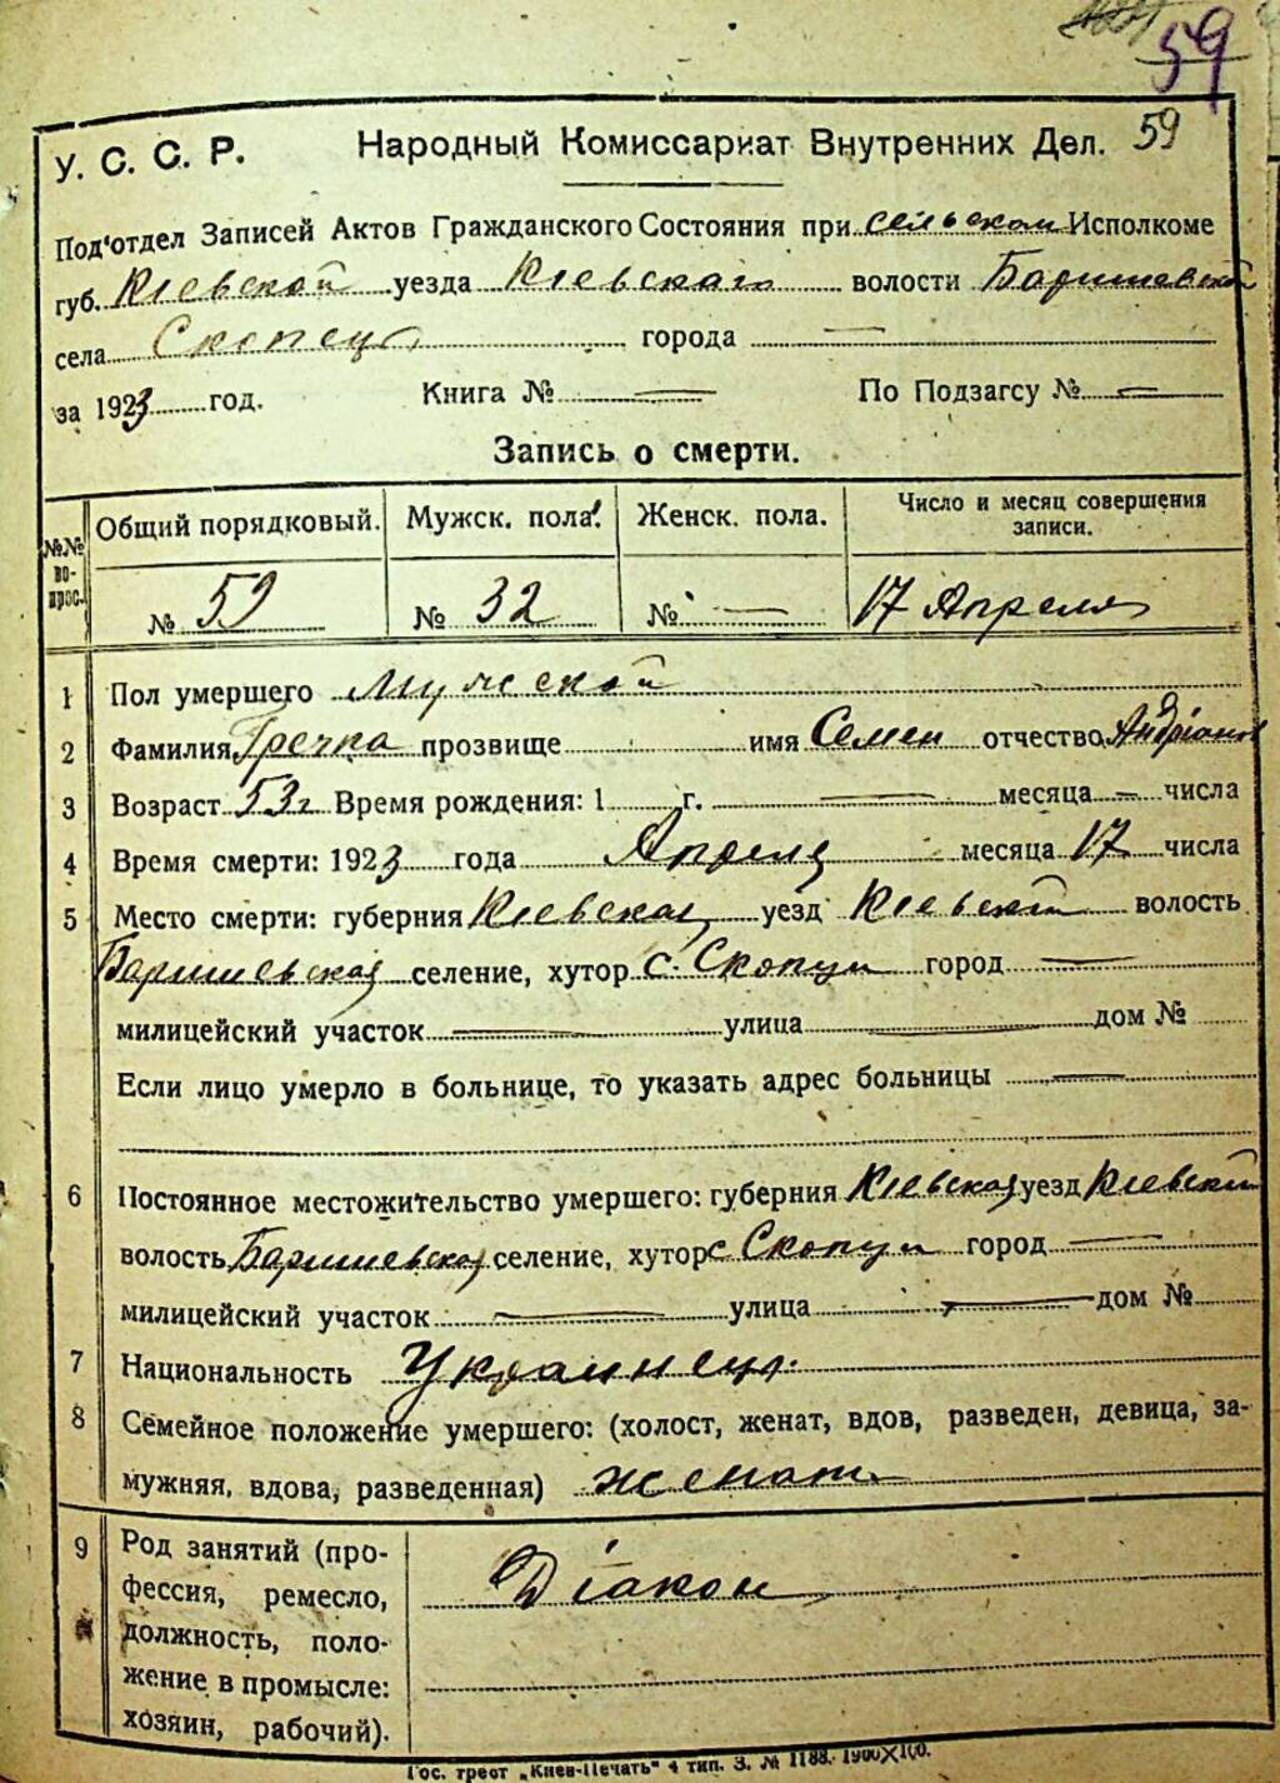 59
У. С. С. Р. Народный Комиссариат Внутренних Дел. 59
Под'отдел Записей Актов Гражданского Состояния при сельском Исполкоме
губ. Кіевской уезда Кіевскаго волости Баришевской
села Скопец города —
за 1923 год. Книга № — По Подзагсу № —
Запись о смерти.
№№ вопрос. Общий порядковый. Мужск. пола. Женск. пола. Число и месяц совершения
записи.
№ 59 № 32 № — 17 Апреля
1 Пол умершего Мужской
2 Фамилия Гречка прозвище имя Семен отчество Андріанов
3 Возраст 53 г Время рождения: 1 г. — месяца — числа
4 Время смерти: 1923 года Апреля месяца 17 числа
5 Место смерти: губерния Кіевская уезд Кіевский волость
Баришевская селение, хутор с. Скопци город —
милицейский участок — улица — дом №
Если лицо умерло в больнице, то указать адрес больницы —
6 Постоянное местожительство умершего: губерния Кіевская уезд Кіевский
волость Баришевская селение, хутор с Скопци город —
милицейский участок — улица — дом №
7 Национальность Украинец
8 Семейное положение умершего: (холост, женат, вдов, разведен, девица, за-
мужняя, вдова, разведенная) женат
9 Род занятий (про-
фессия, ремесло, Діакон
должность, поло-
жение в промысле:
хозяин, рабочий).
Гос. трест „Киев-Печать" 4 тип. З. № 1188. 1900×100.